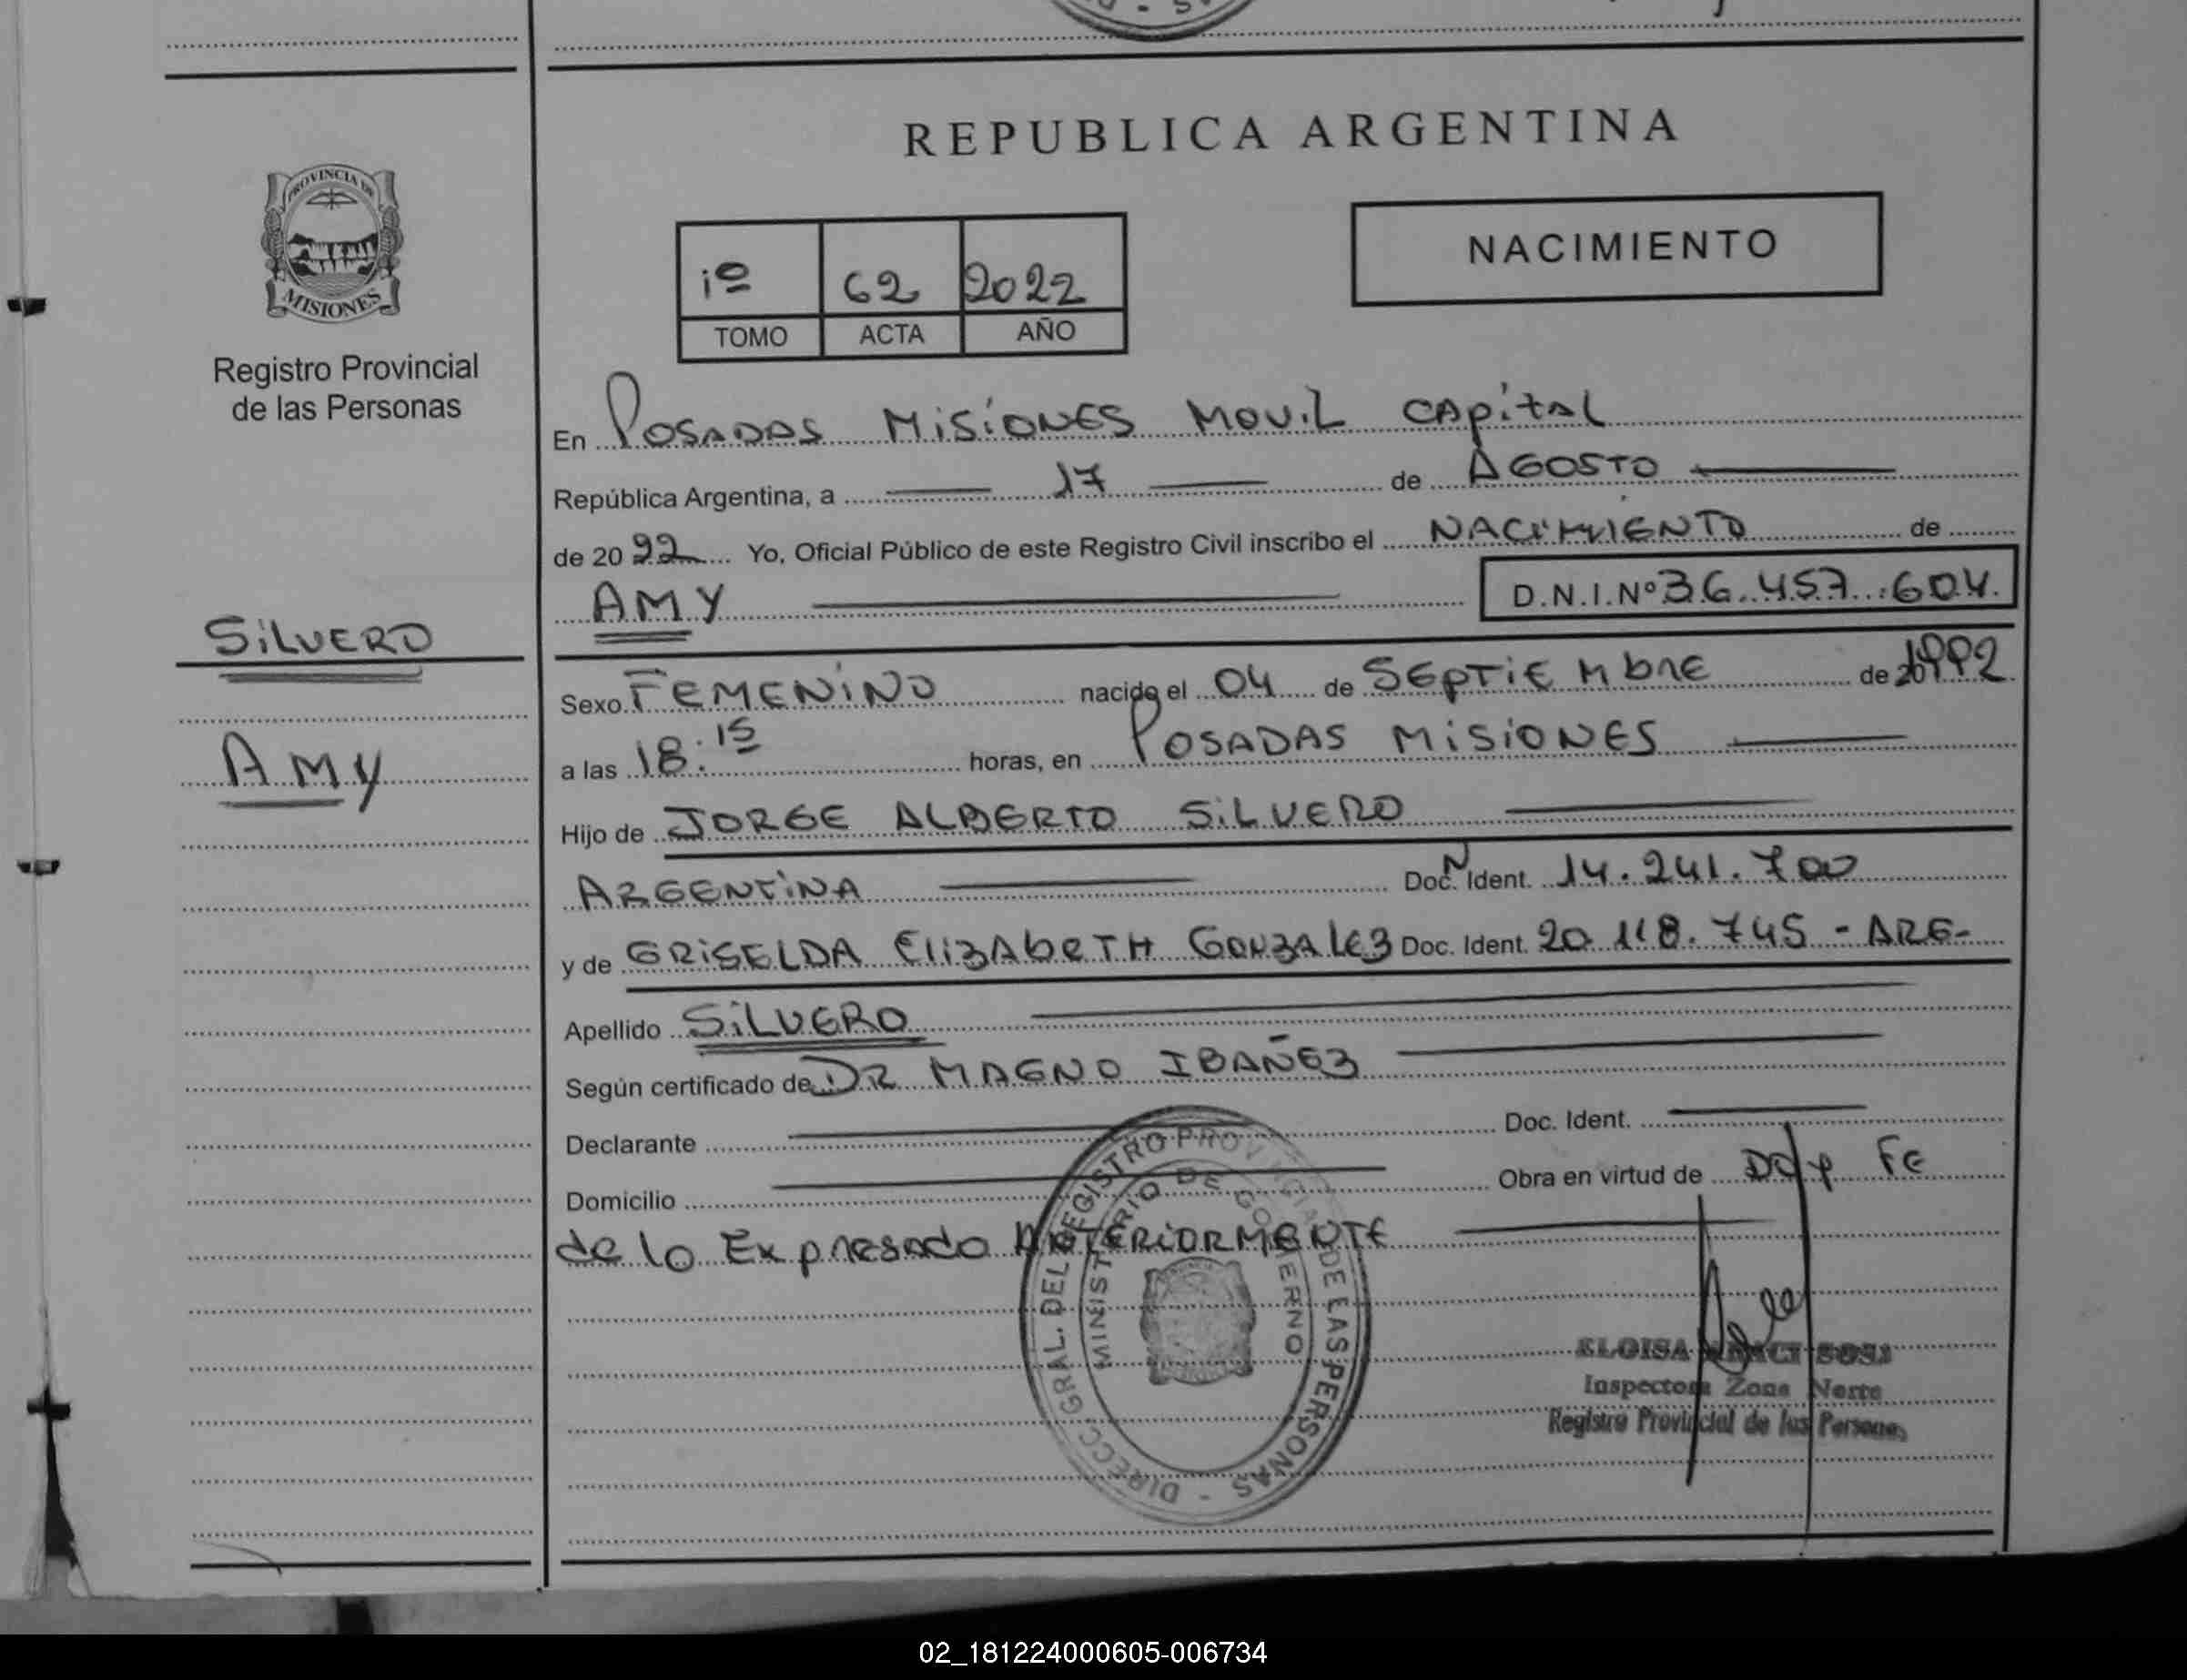 REPUBLICA ARGENTINA
PROVINCIA DE
MISIONES
Registro Provincial
de las Personas
NACIMIENTO
1º 62 2022
TOMO ACTA AÑO
En POSADAS MISIONES MOVIL CAPITAL
República Argentina, a 17 de AGOSTO
de 20 22 Yo, Oficial Público de este Registro Civil inscribo el NACIMIENTO de
AMY D.N.I.Nº 36.457.604.
SILVERO
AMY
Sexo FEMENINO nacida el 04 de SEPTIEMBRE de 1992
a las 18:15 horas, en POSADAS MISIONES
Hijo de JORGE ALBERTO SILVERO
ARGENTINA Doc. N Ident. 14.241.700
y de GRISELDA ELIZABETH GONZALEZ Doc. Ident. 20.118.745 - ARG-
Apellido SILVERO
Según certificado de DR MAGNO IBAÑEZ
Declarante Doc. Ident.
Domicilio Obra en virtud de Doy FE
de lo Expresado ANTERIORMENTE
DIRECC. GRAL. DEL REGISTRO PROVINCIAL DE LAS PERSONAS -
MINISTERIO DE GOBIERNO
ELOISA SOSA
Inspectora Zona Norte
Registro Provincial de las Personas
02_181224000605-006734